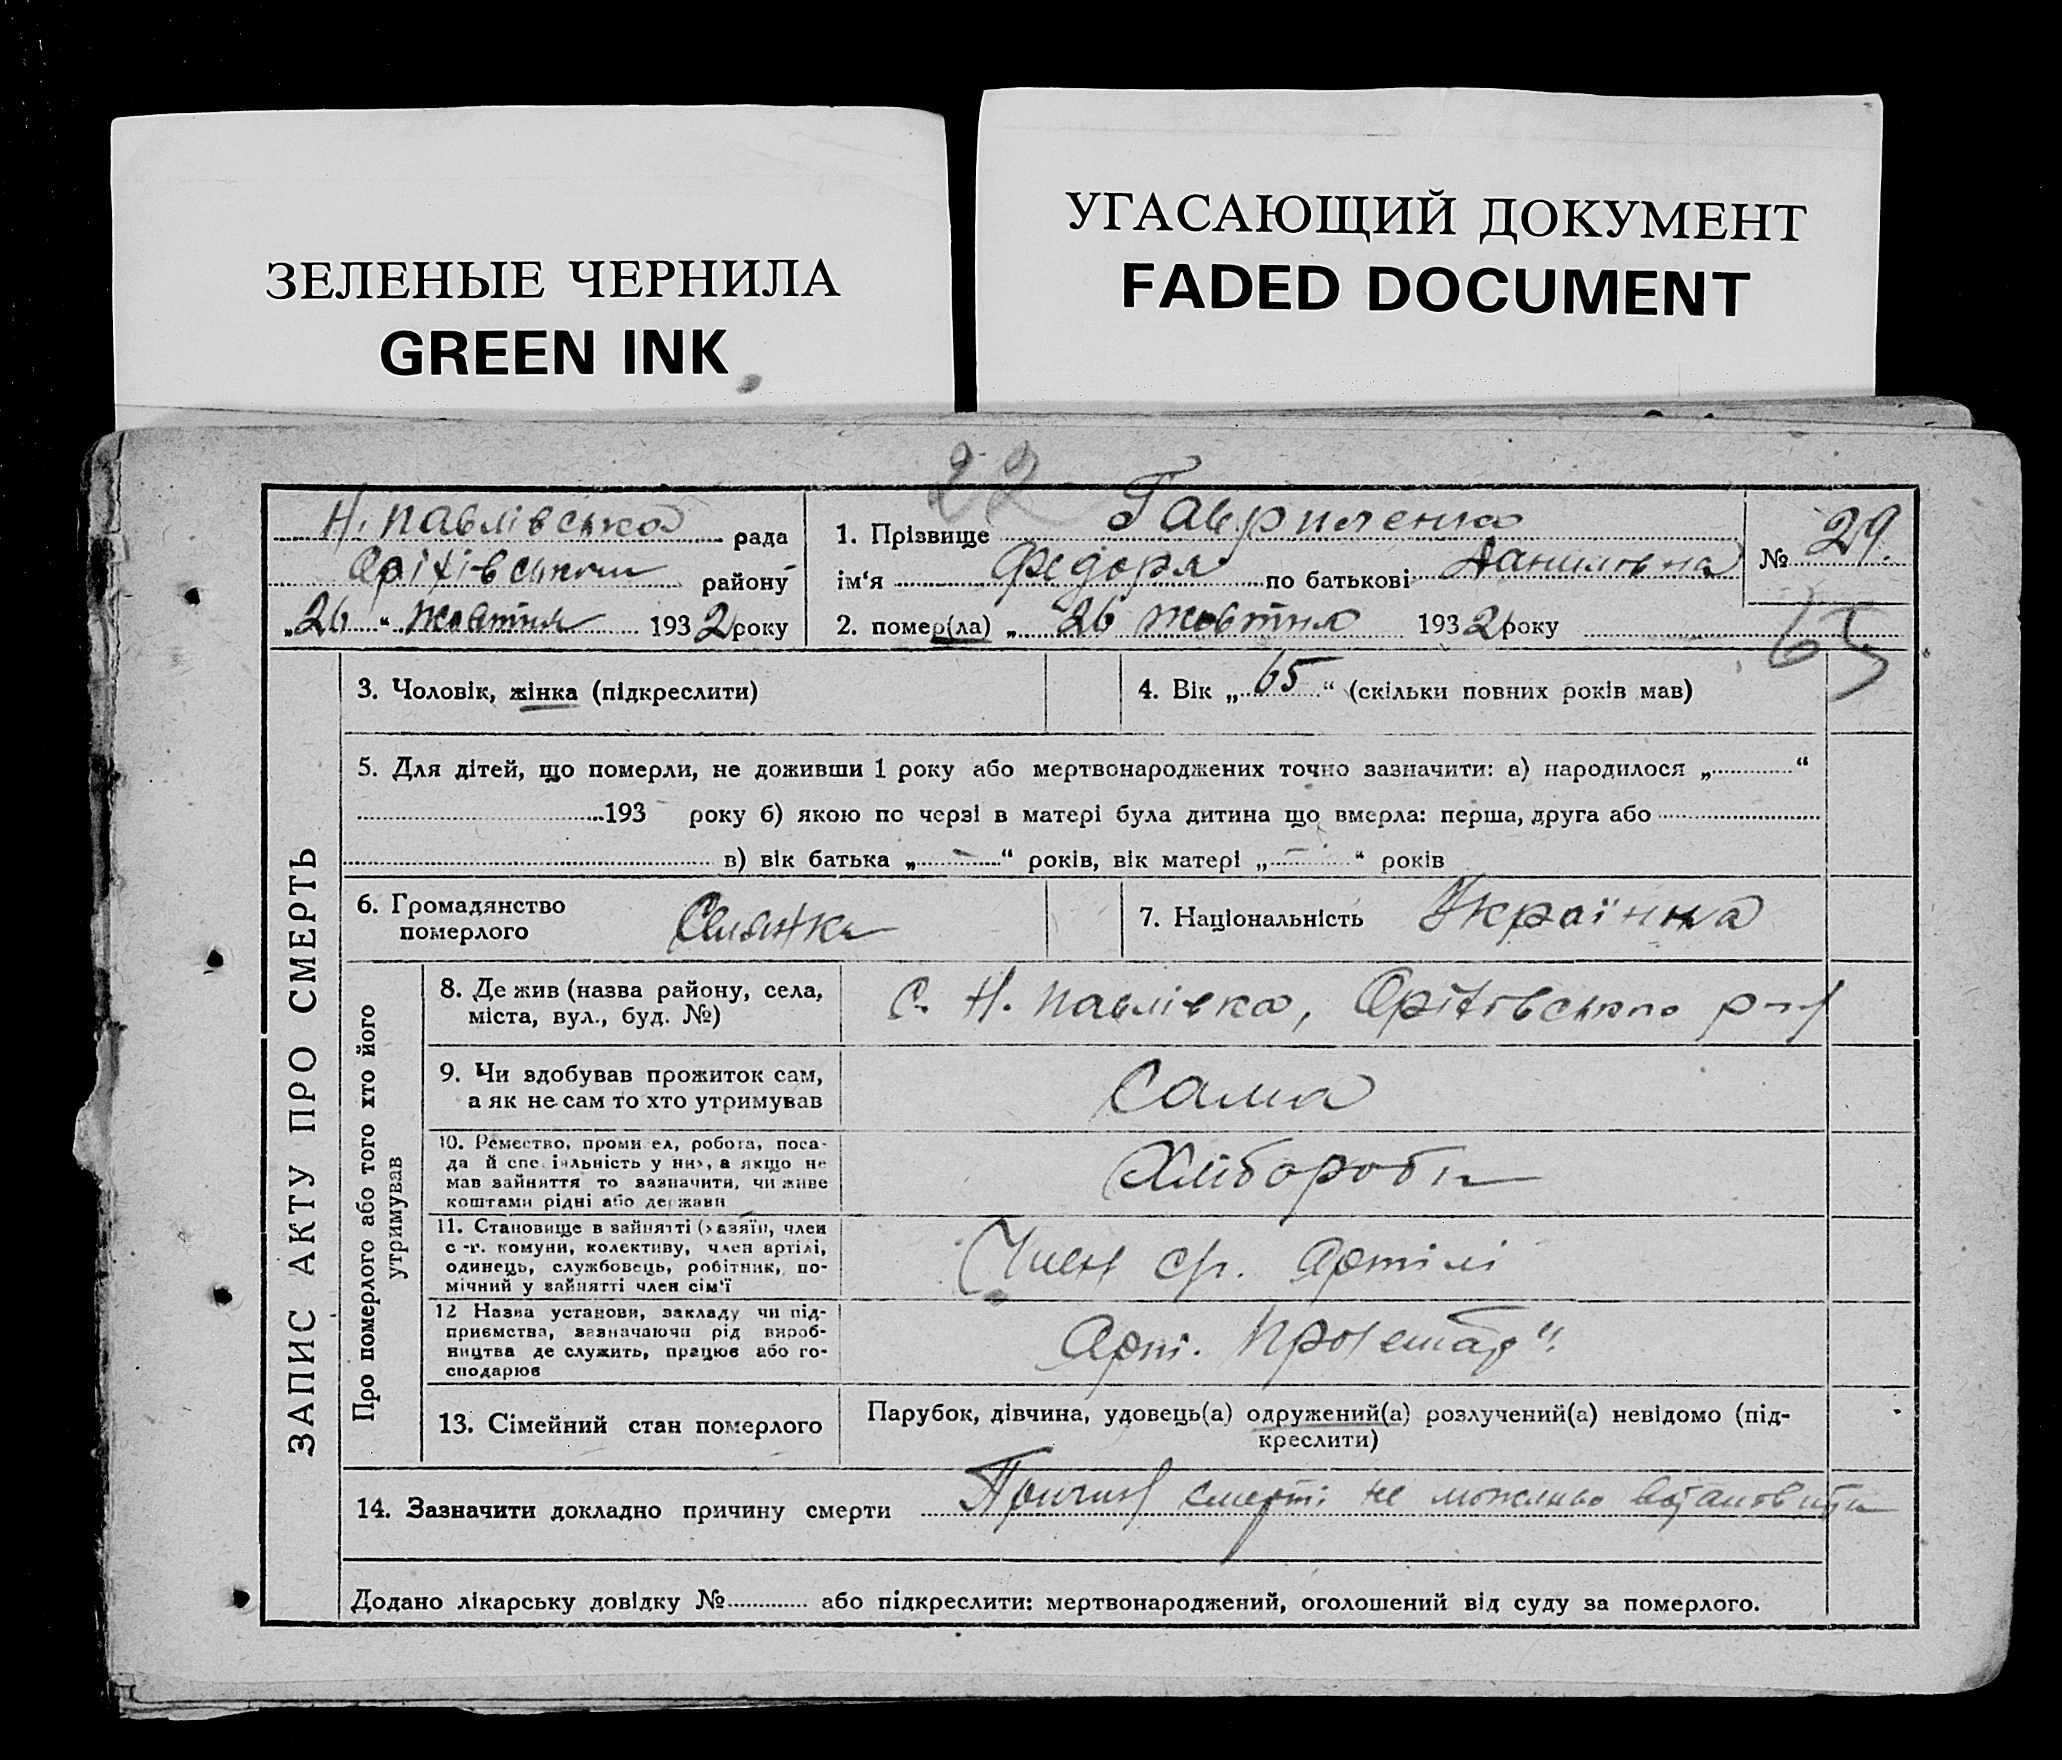 ЗЕЛЕНЫЕ ЧЕРНИЛА
GREEN INK
УГАСАЮЩИЙ ДОКУМЕНТ
FADED DOCUMENT
22
Н. Павлівська рада
Оріхівського району
„26“ жовтня 1932 року
1. Прізвище Гавриленко
ім‘я Федора по батькові Даниловна
№ 29.
2. помер(ла) „26 жовтня 1932 року
65
ЗАПИС АКТУ ПРО СМЕРТЬ
3. Чоловік, жінка (підкреслити)
4. Вік „65“ (скільки повних років мав)
5. Для дітей, що померли, не доживши 1 року або мертвонароджених точно зазначити: а) народилося „ “
193 року б) якою по черзі в матері була дитина що вмерла: перша, друга або
в) вік батька „ – “ років, вік матері „ – “ років
6. Громадянство
померлого
Селянка
7. Національність Українка
Про померлого або того хто його
утримував
8. Де жив (назва району, села,
міста, вул., буд. №)
с. Н. Павлівка, Оріхівського р-н
9. Чи здобував прожиток сам,
а як не сам то хто утримував
Сама
10. Ремество, промисел, робота, поса-
да й спеціяльність у них, а якщо не
мав зайняття то зазначити, чи живе
коштами рідні або держави
Хлібороби
11. Становище в зайнятті (хазяїн, член
с.-г. комуни, колективу, член артілі,
одинець, службовець, робітник, по-
мічний у зайнятті член сім‘ї
Член ср. Артілі
12 Назва установи, закладу чи під-
приємства, зазначаючи рід вироб-
ництва де служить, працює або го-
сподарює
Арт.
13. Сімейний стан померлого
Парубок, дівчина, удовець(а) одружений(а) розлучений(а) невідомо (під-
креслити)
14. Зазначити докладно причину смерти Причину смерті не можливо встановити
Додано лікарську довідку № або підкреслити: мертвонароджений, оголошений від суду за померлого.